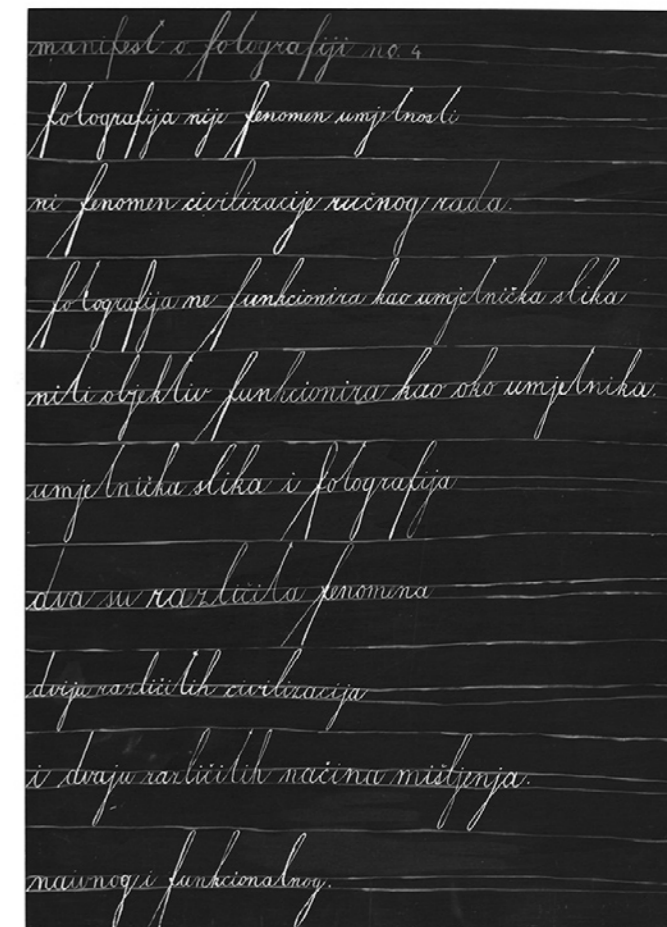 manifest o fotografiji no. 4
fotografija nije fenomen umjetnosti
ni fenomen civilizacije ručnog rada.
fotografija ne funkcionira kao umjetnička slika
niti objektiv funkcionira kao oko umjetnika.
umjetnička slika i fotografija
dva su različita fenomena
dviju različitih civilizacija
i dvaju različitih načina mišljenja.
naivnog i funkcionalnog.